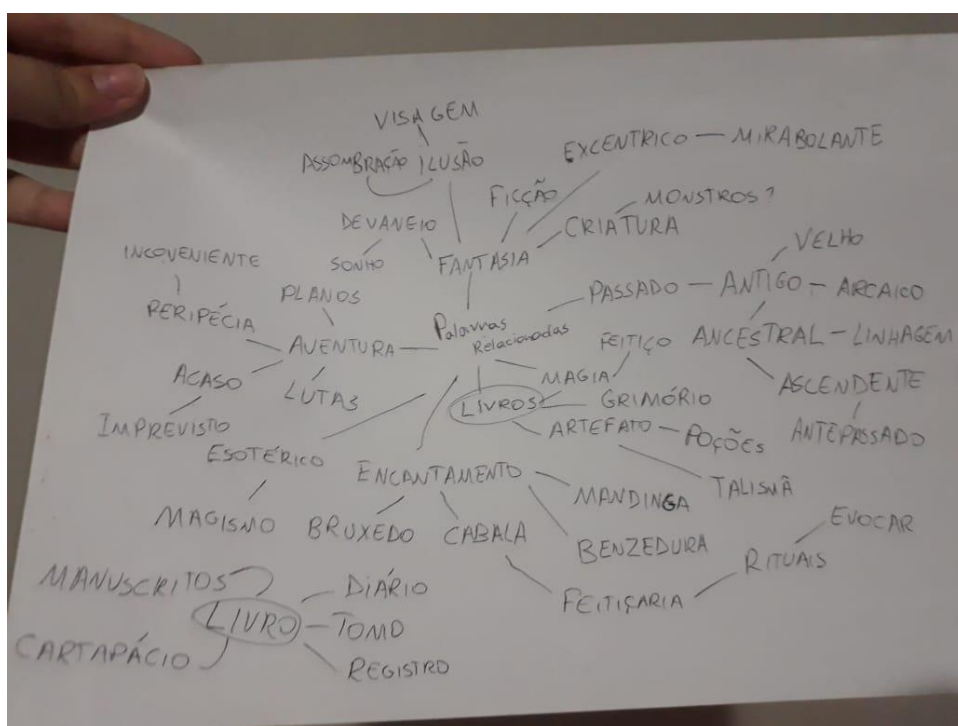 VISAGEM
ASSOMBRAÇÃO ILUSÃO
EXCENTRICO — MIRABOLANTE
FICÇÃO
MONSTROS?
DEVANEIO
CRIATURA
VELHO
INCOVENIENTE
SONHO
FANTASIA
PLANOS
PASSADO — ANTIGO — ARCAICO
PERIPÉCIA
AVENTURA
Palavras
Relacionadas
FEITIÇO
ANCESTRAL — LINHAGEM
ACASO
LUTAS
MAGIA
ASCENDENTE
LIVROS
GRIMÓRIO
IMPREVISTO
ARTEFATO — POÇÕES
ANTEPASSADO
ESOTÉRICO
ENCANTAMENTO
TALISMÃ
MAGISMO
BRUXEDO
CABALA
MANDINGA
EVOCAR
BENZEDURA
RITUAIS
MANUSCRITOS
DIÁRIO
FEITIÇARIA
LIVRO — TOMO
CARTAPÁCIO
REGISTRO